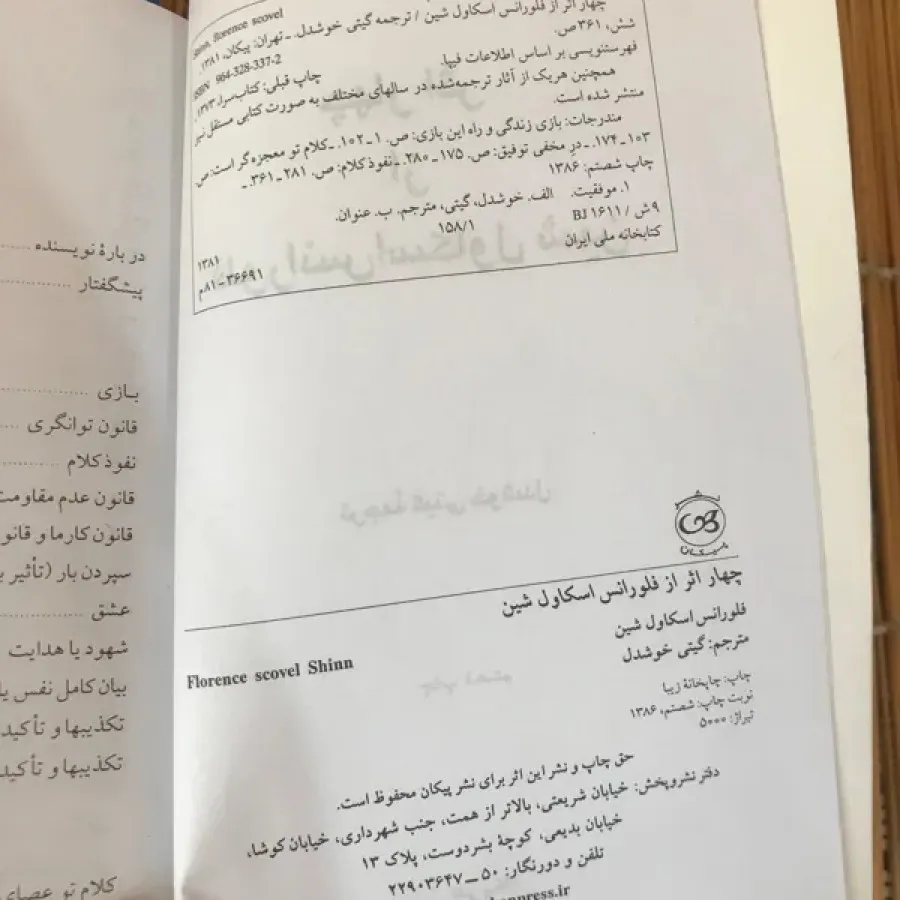 Shinn, florence scovel
چهار اثر از فلورانس اسکاول شین / ترجمه گیتی خوشدل. ـ تهران: پیکان، ۱۳۸۱.
شش، ۳۶۱ص.
ISBN 964-328-337-2
فهرستنویسی بر اساس اطلاعات فیپا.
چاپ قبلی: کتاب‌سرا، ۱۳۷۳.
همچنین هریک از آثار ترجمه‌شده در سالهای مختلف به صورت کتابی مستقل نیز
منتشر شده است.
مندرجات: بازی زندگی و راه این بازی: ص. ۱ـ۱۰۲. ـ کلام تو معجزه‌گر است: ص.
۱۰۳ـ۱۷۴. ـ درِ مخفی توفیق: ص. ۱۷۵ـ۲۸۰. ـ نفوذ کلام: ص. ۲۸۱ـ۳۶۱. ـ
چاپ شصتم: ۱۳۸۶
۱. موفقیت. الف. خوشدل، گیتی، مترجم. ب. عنوان.
۹ش / BJ ۱۶۱۱ ۱۵۸/۱
کتابخانه ملی ایران
۱۳۸۱
۳۶۶۹۱-۸۱م
پیکان
چهار اثر از فلورانس اسکاول شین
فلورانس اسکاول شین
Florence scovel Shinn
مترجم: گیتی خوشدل
چاپ: چاپخانهٔ زیبا
نوبت چاپ: شصتم، ۱۳۸۶
تیراژ: ۵۰۰۰
حق چاپ و نشر این اثر برای نشر پیکان محفوظ است.
دفتر نشر و پخش: خیابان شریعتی، بالاتر از همت، جنب شهرداری، خیابان کوشا،
خیابان بدیعی، کوچهٔ بشردوست، پلاک ۱۳
تلفن و دورنگار: ۵۰ ــ ۲۲۹۰۳۶۴۷
press.ir
دربارهٔ نویسنده
پیشگفتار
بازی
قانون توانگری
نفوذ کلام
قانون عدم مقاومت
قانون کارما و قانو
سپردن بار (تأثیر ب
عشق
شهود یا هدایت
بیان کامل نفس یا
تکذیبها و تأکید
تکذیبها و تأکید
کلام تو عصای